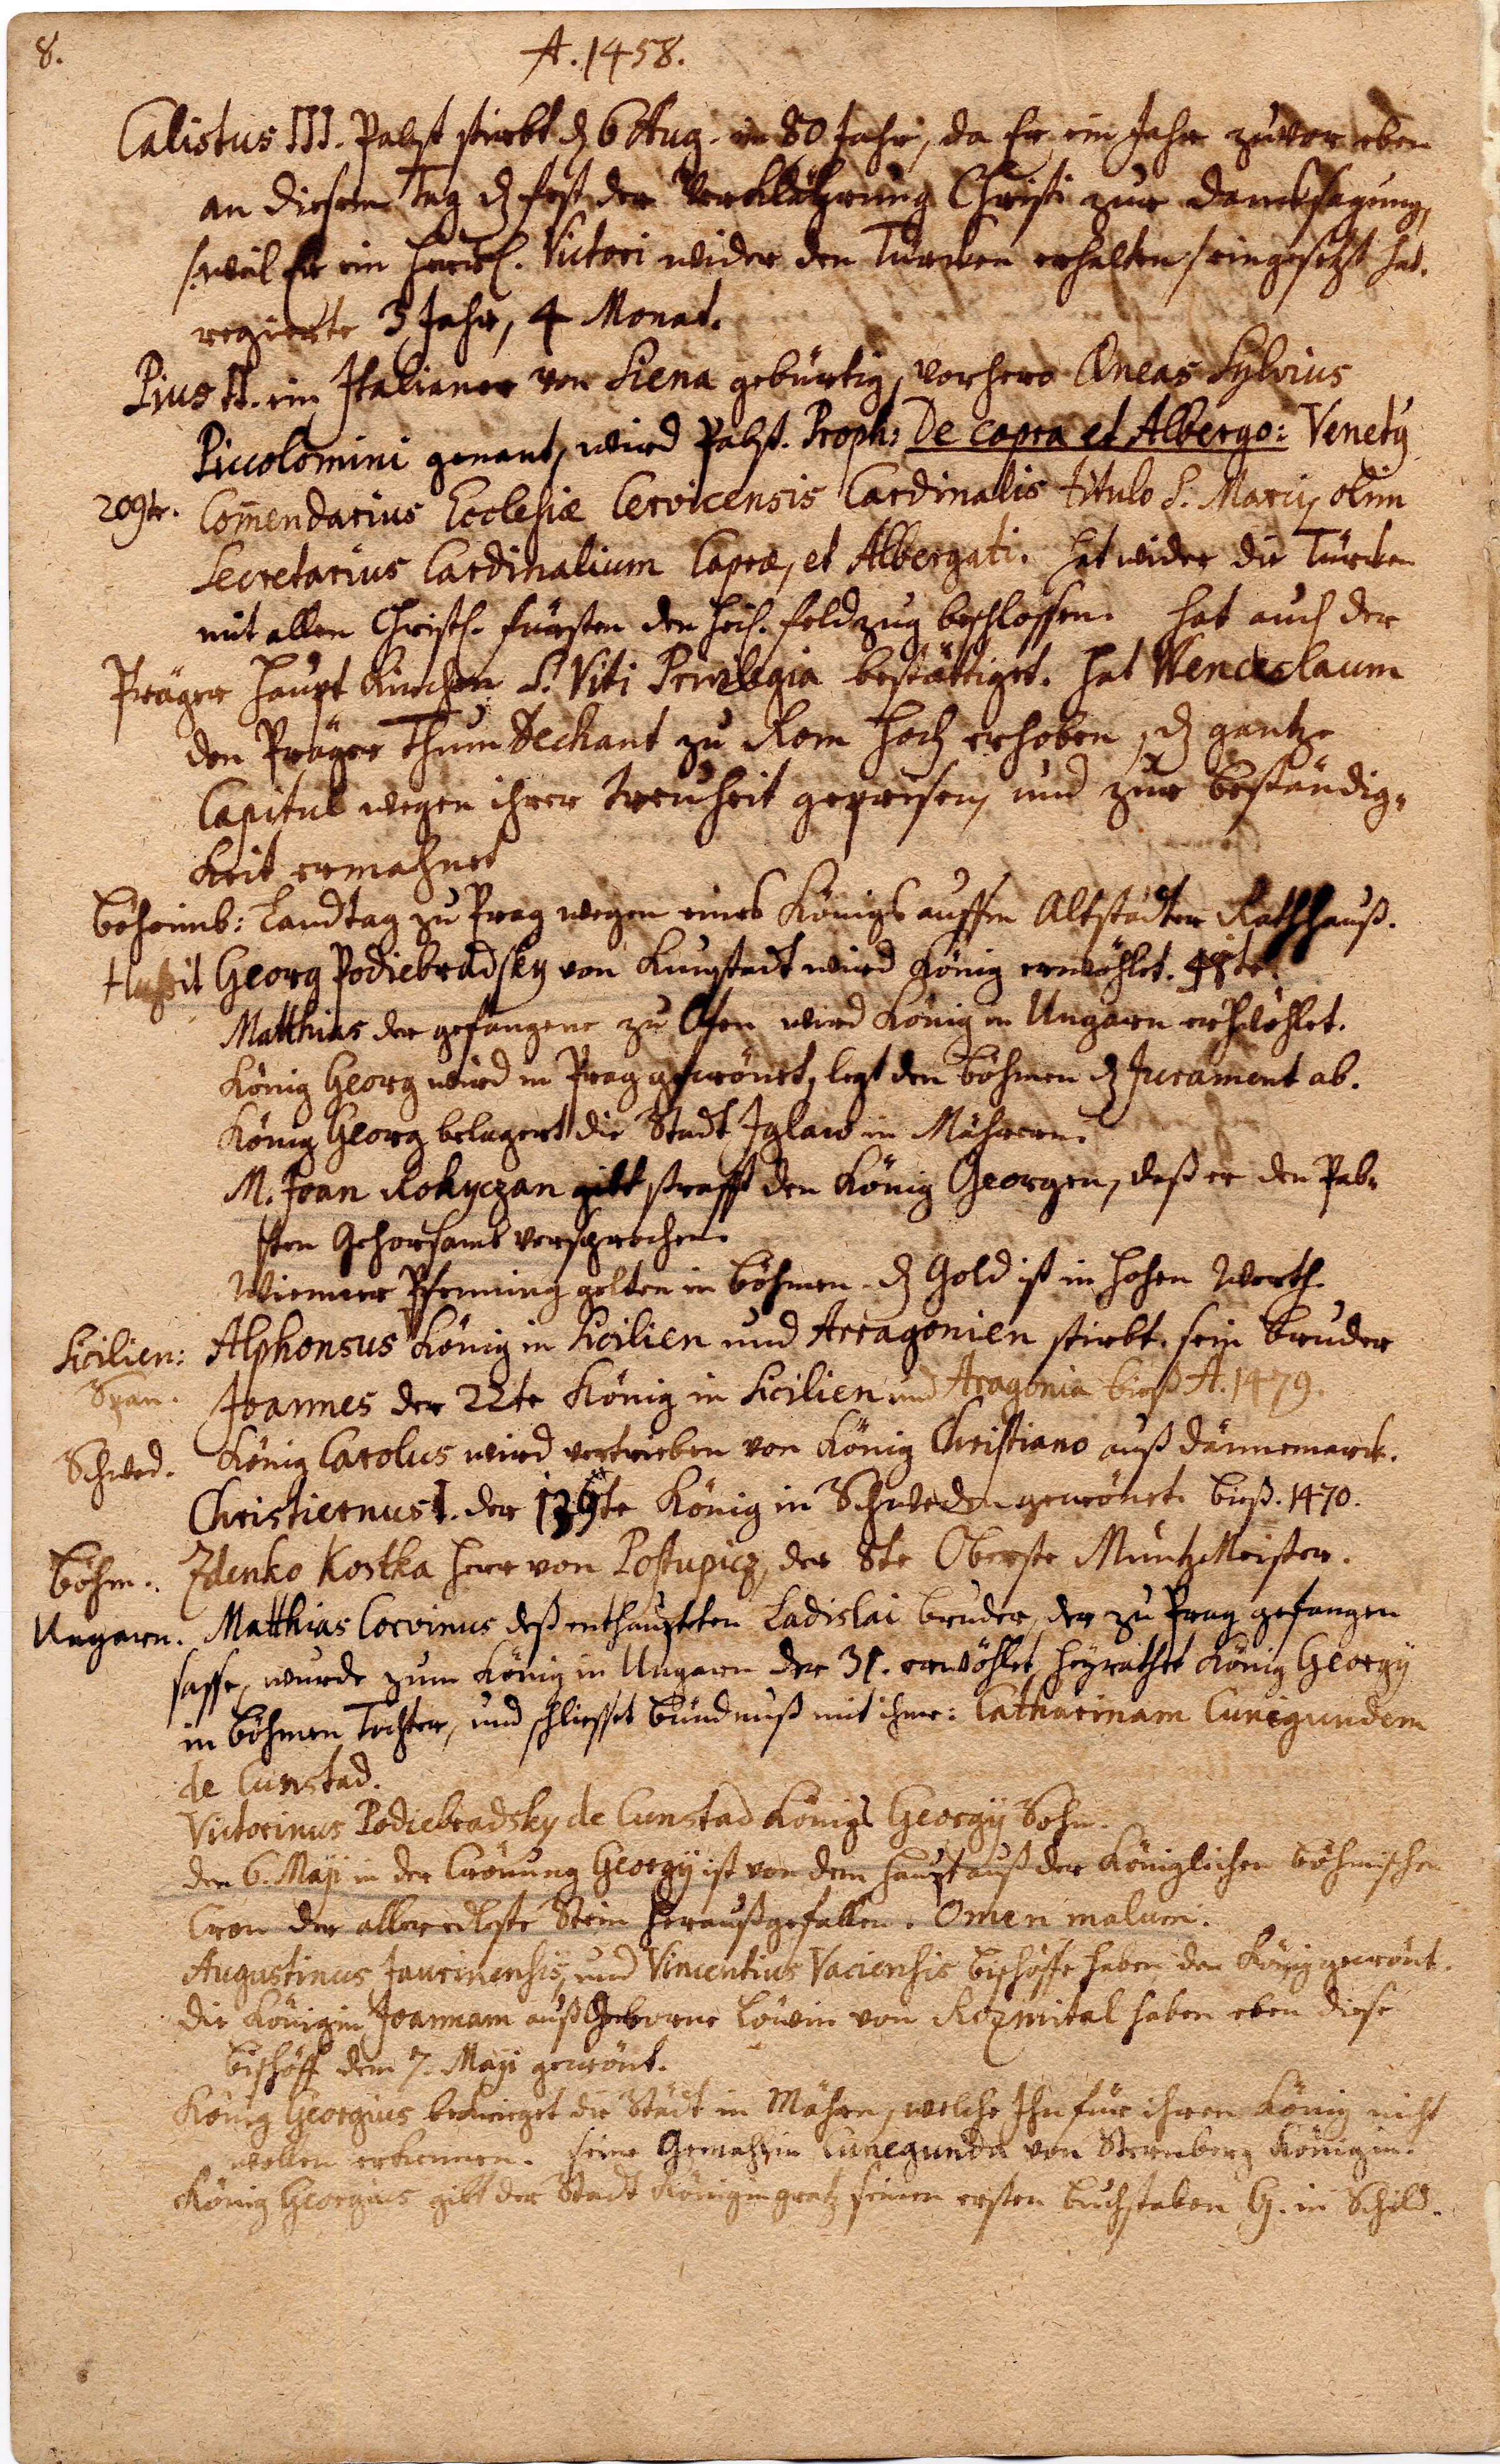 8.
A. 1458.
Calistus III. Pabst stirbt dz 6 Aug. im 80 Jahr, da Er ein Jahr zuvor eben
an diesem Tag dz fest der Verklährung Christi zur dancksagung,
/:weil Er ein herrl. Victori wider den Türcken erhalten/ eingesetzt hat.
regierte 3 Jahr, 4 Monat.
Pius II. ein Italianer von Siena gebürtig, vorhero Æneas Sylvius
Piccolomini genant, wird Pabst. Proph: De capra et Albergo: Venetÿ
209te. Com̄endarius Ecclesiæ Cervicensis Cardinalis titulo S. Marci, olim
Secretarius Cardinalium Capræ, et Albergati. hat wider die Türcken
mit allen Christl. fürsten den heil. feldzug beschlossen. hat auch der
Präger haupt Kirchen S. Viti Privilegia bestättiget. hat Wenceslaum
den Präger Thum Dechant zu Rom hoch erhoben, dz gantze
Capitul wegen ihrer treuheit gepriesen, und zur beständig=
keit ermahnet
Böheimb: Landtag zu Prag wegen eines Königs auffm Altstädter Rathhauß.
Hußit Georg Podiebradsky von Kunstadt wird König erwöhlet. 48te.
Matthias der gefangene zu Ofen wird König in Ungarn erwöhlet.
König Georg wird in Prag gecrönet, legt den Böhmen dz Jurament ab.
König Georg belagert die Stadt Iglaw in Mähren.
M. Joan Rokyczan gibt strafft den König Georgen, daß er den Pab=
sten Gehorsamb versprochen.
Wienner Pfenning gelten in Böhmen. dz Gold ist in hohen Werth.
Sicilien: Alphonsus V König in Sicilien und Arragonien stirbt. sein Bruder
Span. Joannes der 22te König in Sicilien und Aragonia bieß A. 1479.
Schwed. König Carolus wird vertrieben von König Christiano auß Dännemarck.
Christiernus I. der te König in Schweden gecrönet. bieß. 1470.
Böhm.. Zdenko Kostka Herr von Postupicz, der 8te Oberste MüntzMeister.
Ungarn. Matthias Corvinus deß enthaupteten Ladislai bruder, der zu Prag gefangen
sasse, wurde zum König in Ungarn der 31. erwöhlet, heyrathet König Georgÿ
in Böhmen Tochter, und schliesset Bündnuß mit ihme: Catharinam Cunegundem
de Cunstad.
Victorinus Podiebradsky de Cunstad Königs Georgÿ Sohn.
den 6. Maji in der Crönung Georgÿ ist von dem haupt auß der Königlichen Böhmischen
Cron der alleredleste Stein heraußgefallen. Omen malum.
Augustinus Jaurinensis, und Vincentius Vaciensis Bischöffe haben den König gecrönt.
die Königin Joannam auß Geborne Löwin von Rozmital haben eben diese
Bischöff dem 7. Maji gecrönt.
König Georgius bezwinget die Städt in Mähren, welche Ihn für ihren König nicht
wollen erkennen. seine Gemahlin Cunegunda von Sternberg Königin.
König Georgius gibt der Stadt Königingratz seinen ersten Buchstaben G. in Schild.